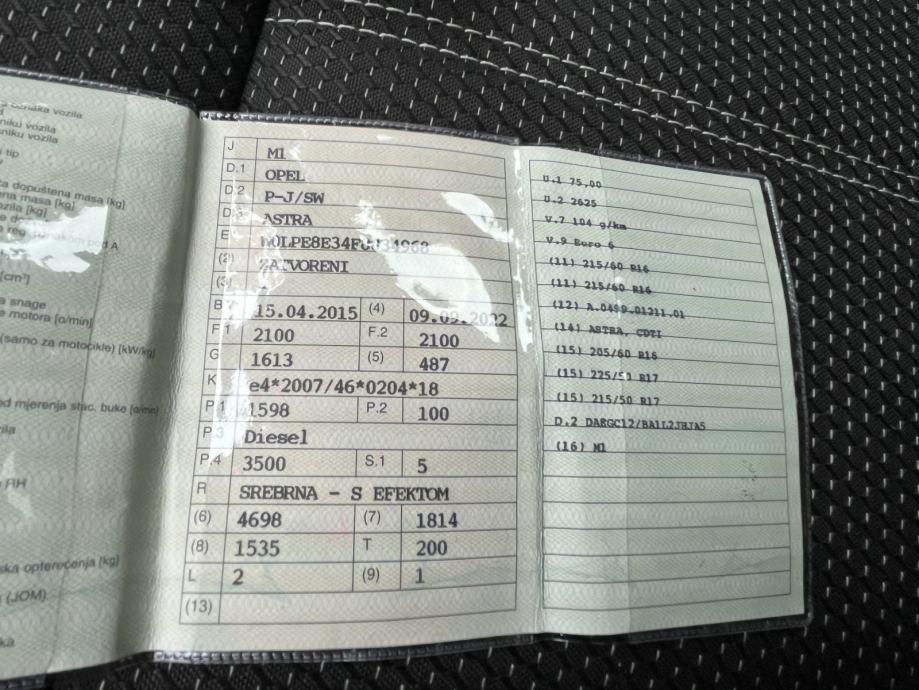 oznaka vozila
niku vozila
niku vozila
i tip
a dopuštena masa [kg]
ena masa [kg]
ozila [kg]
A
[cm³]
snage
e motora [o/min]
(samo za motocikle) [kW/kg]
od mjerenja stac. buke [o/min]
zila
RH
ska opterećenja [kg]
(JOM)
ka
J M1
D.1 OPEL
D.2 P-J/SW
ASTRA
E
(2) ZATVORENI
(3) -
B 15.04.2015 (4) 09.09.2022
F.1 2100 F.2 2100
G 1613 (5) 487
K e4*2007/46*0204*18
P.1 1598 P.2 100
P.3 Diesel
P.4 3500 S.1 5
R SREBRNA - S EFEKTOM
(6) 4698 (7) 1814
(8) 1535 T 200
L 2 (9) 1
(13)
U.1 75,00
U.2 2625
V.7 104 g/km
V.9 Euro 6
(11) 215/60 R16
(11) 215/60 R16
(12) A.0499.01211.01
(14) ASTRA, CDTI
(15) 205/60 R16
(15) 225/50 R17
(15) 215/50 R17
D.2 DAEGC12/BA1L2JHJA5
(16) M1